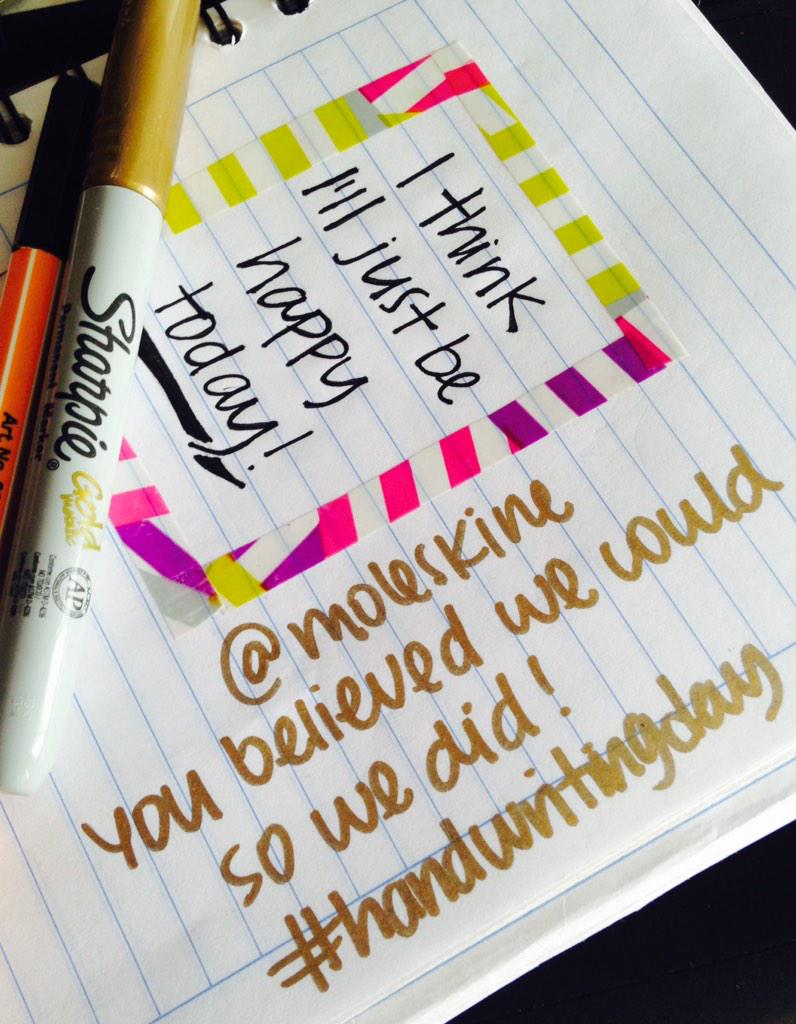 I think
I'll just be
happy
today!
@moleskine
you believed we could
so we did!
#handwritingday
Sharpie®
Permanent Marker
Gold
AP
Art. No.